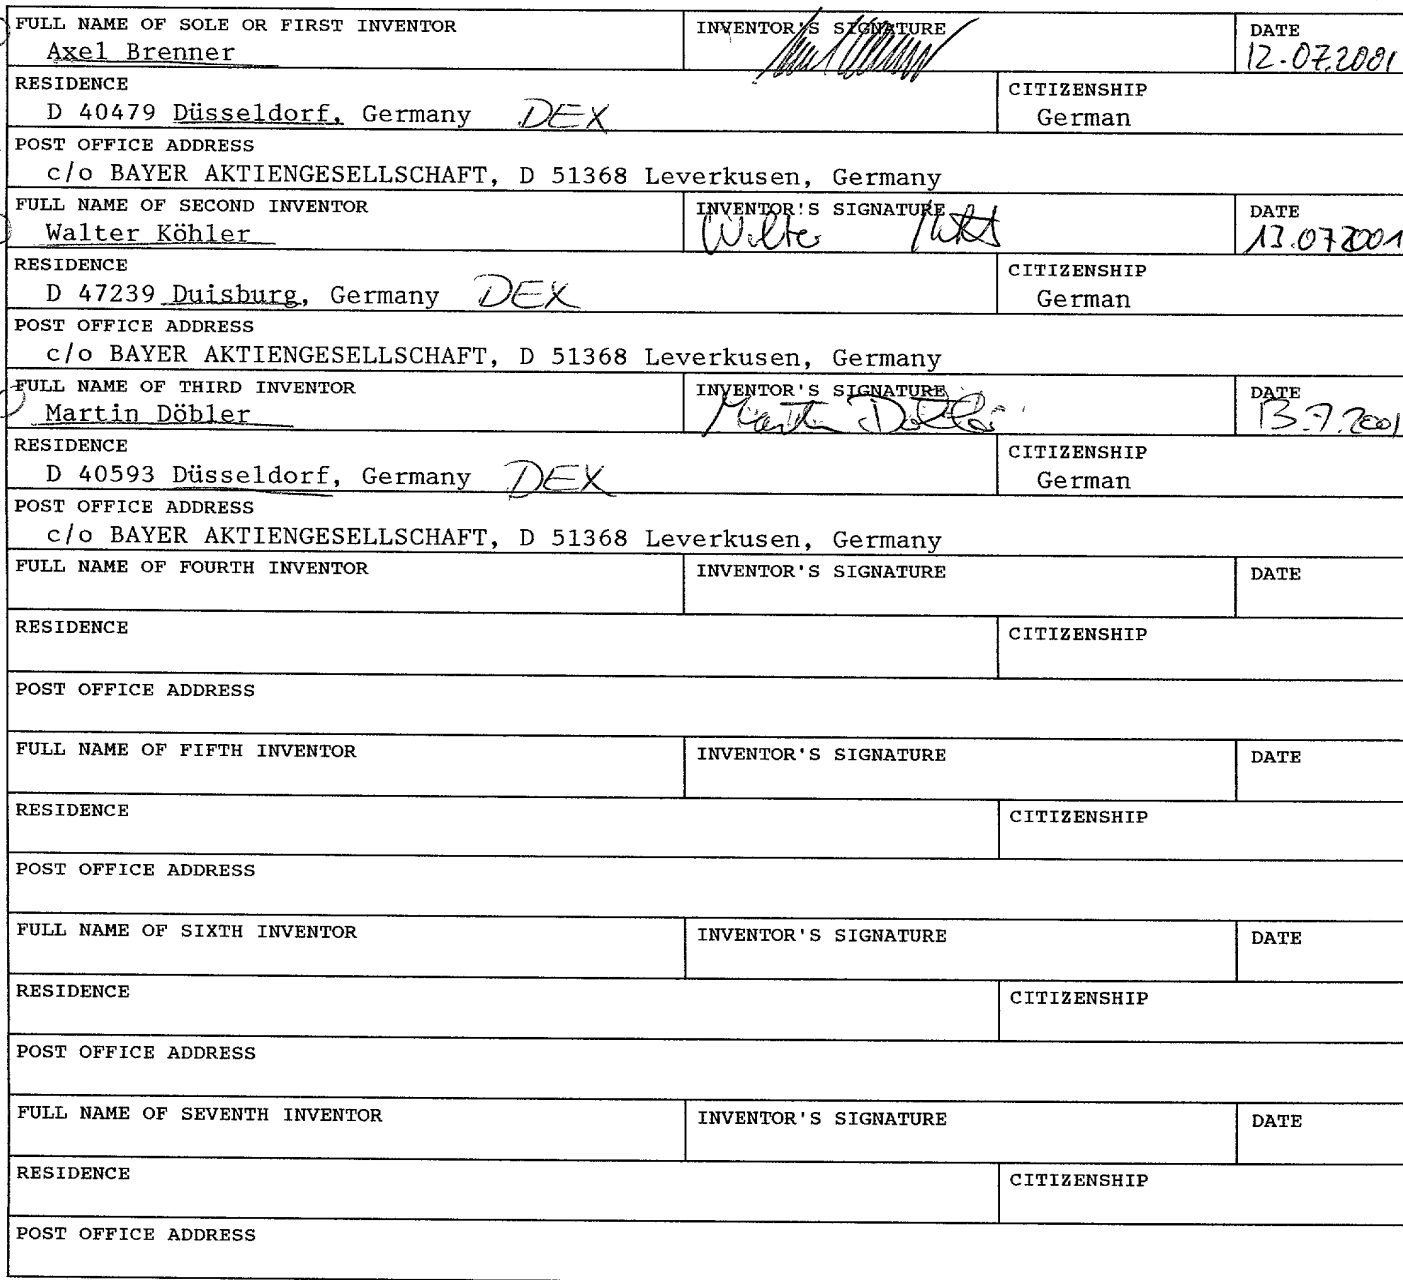 FULL NAME OF SOLE OR FIRST INVENTOR INVENTOR'S SIGNATURE DATE
Axel Brenner 12.07.2001
RESIDENCE CITIZENSHIP
D 40479 Düsseldorf, Germany DEX German
POST OFFICE ADDRESS
c/o BAYER AKTIENGESELLSCHAFT, D 51368 Leverkusen, Germany
FULL NAME OF SECOND INVENTOR INVENTOR'S SIGNATURE DATE
Walter Köhler Walter 13.07.2001
RESIDENCE CITIZENSHIP
D 47239 Duisburg, Germany DEX German
POST OFFICE ADDRESS
c/o BAYER AKTIENGESELLSCHAFT, D 51368 Leverkusen, Germany
FULL NAME OF THIRD INVENTOR INVENTOR'S SIGNATURE DATE
Martin Döbler Martin Döbler 13.7.2001
RESIDENCE CITIZENSHIP
D 40593 Düsseldorf, Germany DEX German
POST OFFICE ADDRESS
c/o BAYER AKTIENGESELLSCHAFT, D 51368 Leverkusen, Germany
FULL NAME OF FOURTH INVENTOR INVENTOR'S SIGNATURE DATE
RESIDENCE CITIZENSHIP
POST OFFICE ADDRESS
FULL NAME OF FIFTH INVENTOR INVENTOR'S SIGNATURE DATE
RESIDENCE CITIZENSHIP
POST OFFICE ADDRESS
FULL NAME OF SIXTH INVENTOR INVENTOR'S SIGNATURE DATE
RESIDENCE CITIZENSHIP
POST OFFICE ADDRESS
FULL NAME OF SEVENTH INVENTOR INVENTOR'S SIGNATURE DATE
RESIDENCE CITIZENSHIP
POST OFFICE ADDRESS